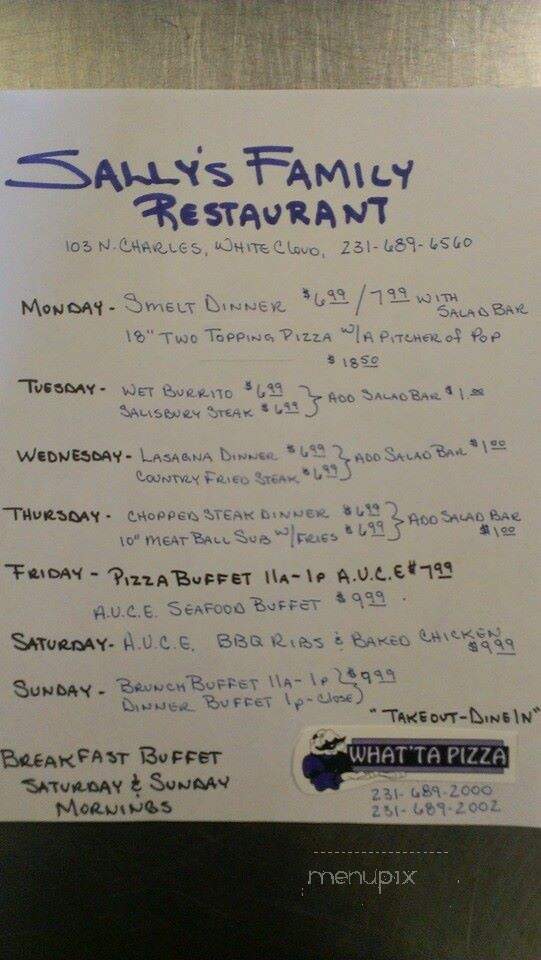 SALLY'S FAMILY
RESTAURANT
103 N. CHARLES, WHITE CLOUD, 231-689-6560
MONDAY - SMELT DINNER $6.99 / 7.99 WITH SALAD BAR
18" TWO TOPPING PIZZA W/A PITCHER OF POP
$18.50
TUESDAY - WET BURRITO $6.99 } ADD SALAD BAR $1.00
SALISBURY STEAK $6.99
WEDNESDAY - LASAGNA DINNER $6.99 } ADD SALAD BAR $1.00
COUNTRY FRIED STEAK $6.99
THURSDAY - CHOPPED STEAK DINNER $6.99 } ADD SALAD BAR
10" MEAT BALL SUB W/FRIES $6.99 $1.00
FRIDAY - PIZZA BUFFET 11A-1P A.U.C.E $7.99
A.U.C.E. SEAFOOD BUFFET $9.99
SATURDAY - A.U.C.E. BBQ RIBS & BAKED CHICKEN
$9.99
SUNDAY - BRUNCH BUFFET 11A-1P } $9.99
DINNER BUFFET 1P-CLOSE
"TAKEOUT-DINE IN"
BREAKFAST BUFFET
SATURDAY & SUNDAY
MORNINGS
WHAT'TA PIZZA
231-689-2000
231-689-2002
menupix